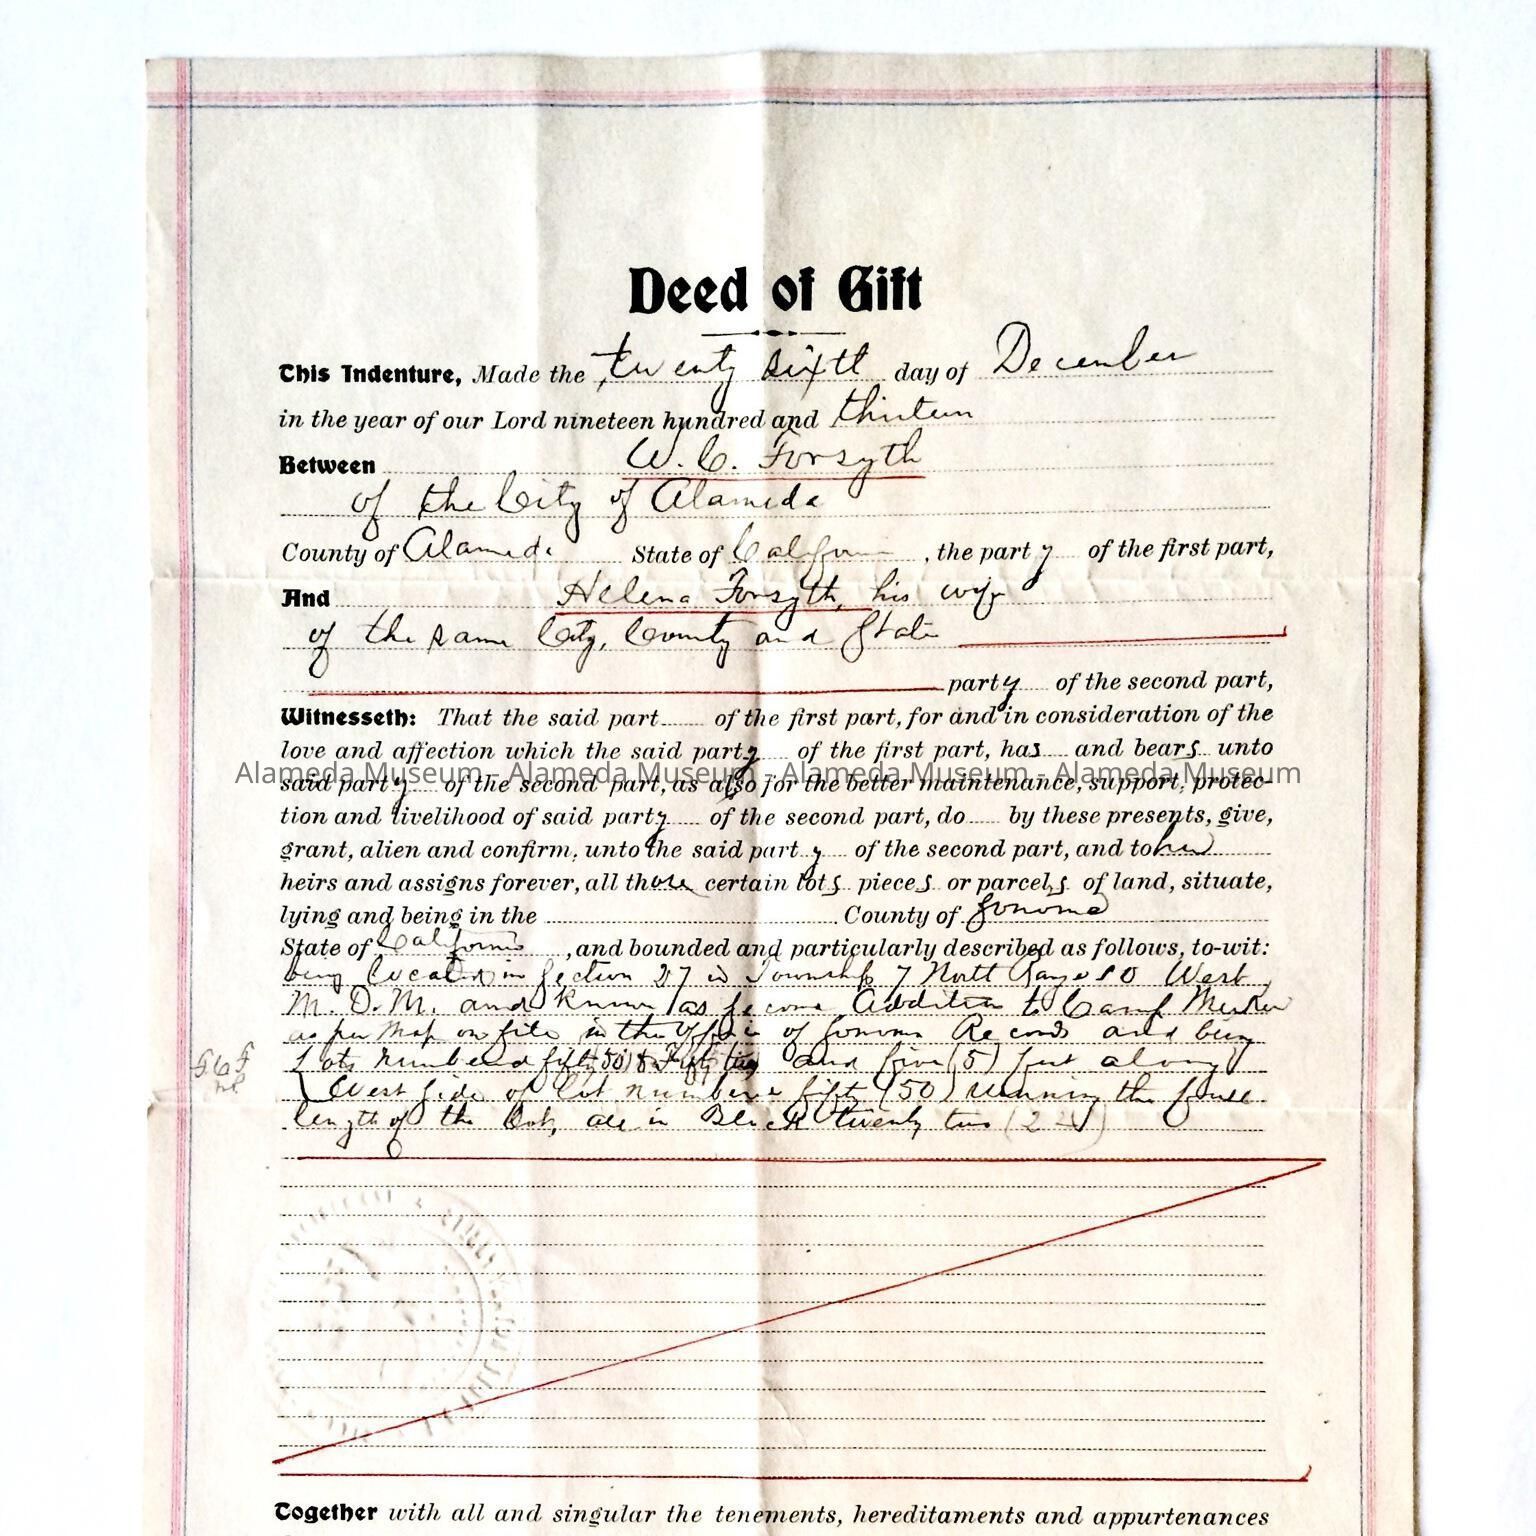 Deed of Gift
This Indenture, Made the twenty sixth day of December
in the year of our Lord nineteen hundred and thirteen
Between W. C. Forsyth
of the City of Alameda
County of Alameda State of California, the party of the first part,
And Helena Forsyth, his wife
of the same City, County and State
party of the second part,
Witnesseth: That the said part of the first part, for and in consideration of the
love and affection which the said party of the first part, has and bears unto
Alameda Museum - Alameda Museum - Alameda Museum - Alameda Museum
said party of the second part, as also for the better maintenance, support, protec-
tion and livelihood of said party of the second part, do by these presents, give,
grant, alien and confirm, unto the said party of the second part, and to her
heirs and assigns forever, all those certain lots pieces or parcels of land, situate,
lying and being in the County of Sonoma
State of California, and bounded and particularly described as follows, to-wit:
being located in Section 27 in Township 7 North Range 10 West
M. D. M. and known as second Addition to Camp Meeker
as per map on file in the office of Sonoma Records and being
Lots numbered fifty (50) & and five (5) feet along
West side of lot number fifty (50) running the full
length of the lot, all in Block twenty two (22)
Together with all and singular the tenements, hereditaments and appurtenances